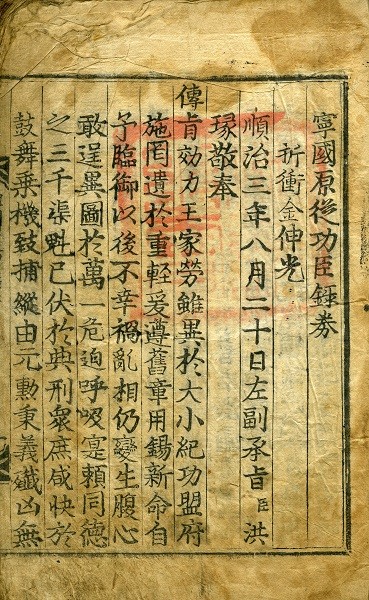 寧國原從功臣錄券
折衝金伸光
順治三年八月二十日左副承旨臣洪
瑑敬奉
傳旨效力王家勞雖異於大小紀功盟府
施罔遺於重輕爰遵舊章用錫新命自
予臨御以後不幸禍亂相仍變生腹心
敢逞異圖於萬一危迫呼吸寔賴同德
之三千渠魁已伏於典刑衆庶咸快於
鼓舞乘機鼓捕縱由元勳秉義殲凶無